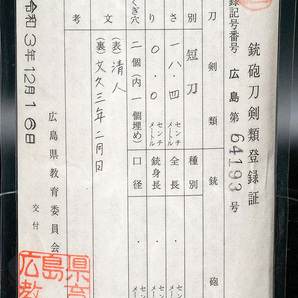 銃砲刀剣類登録証
登録記号番号 広島 第 64193 号
刀剣類
銃砲
種別 短刀
長さ 一八・四 センチメートル
反り 〇・〇 センチメートル
目くぎ穴 二個(内一個埋め)
種別
全長 ・ センチメートル
銃身長 ・ センチメートル
口径 ・ センチ
文
(表)清人
(裏)文久三年二月日
考
令和3年12月16日
広島県教育委員会
交付
広島県教育